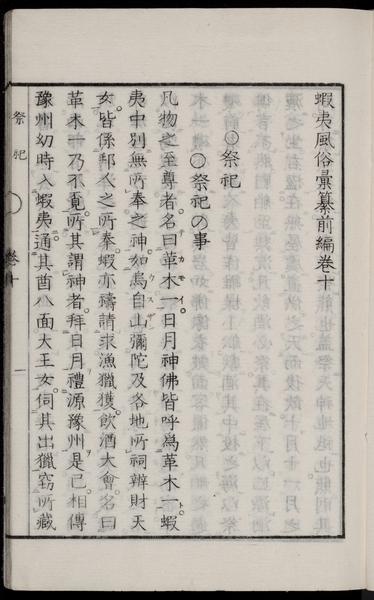 蝦夷風俗彙纂前編卷十
○祭祀
○祭祀の事
凡物之至尊者。名曰革木一。日月神佛皆呼爲革木一。蝦
夷中別無所奉之神。如烏白山彌陀及各地所祠辨財天
女。皆係邦人之所奉。蝦亦禱請求漁獵獲。飮酒大會。名曰
革木一。乃不覔所其謂神者。拜日月禮源豫州是已。相傳
豫州幼時入蝦夷。通其酋八面大王女。伺其出獵。竊所藏
祭祀
卷十
一